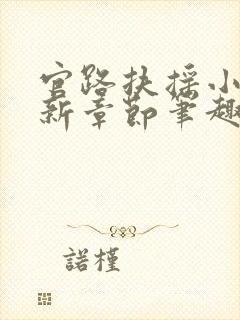 官路扶摇小
新章节笔趣
諾槿